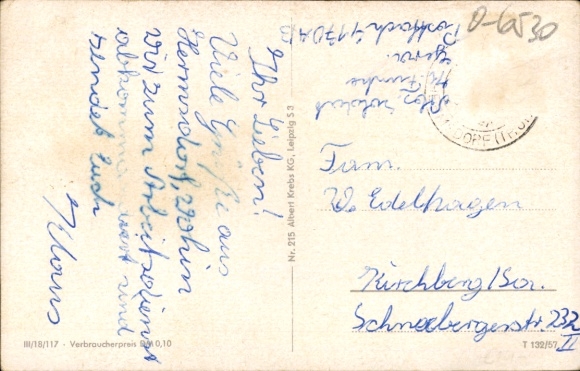 Ihr Lieben!
Viele Grüße aus
Hermsdorf, wohin
wir zum Arbeitsdienst
sind
sendet Euch
Klaus
D-6530
Postfach 4170A/B
Gera
Abs. Soldat
Fam.
W. Edelhagen
Kirchberg/Sa.
Schneebergerstr. 232
II
Nr. 215 Albert Krebs KG, Leipzig S 3
III/18/117 · Verbraucherpreis DM 0,10
T 132/57